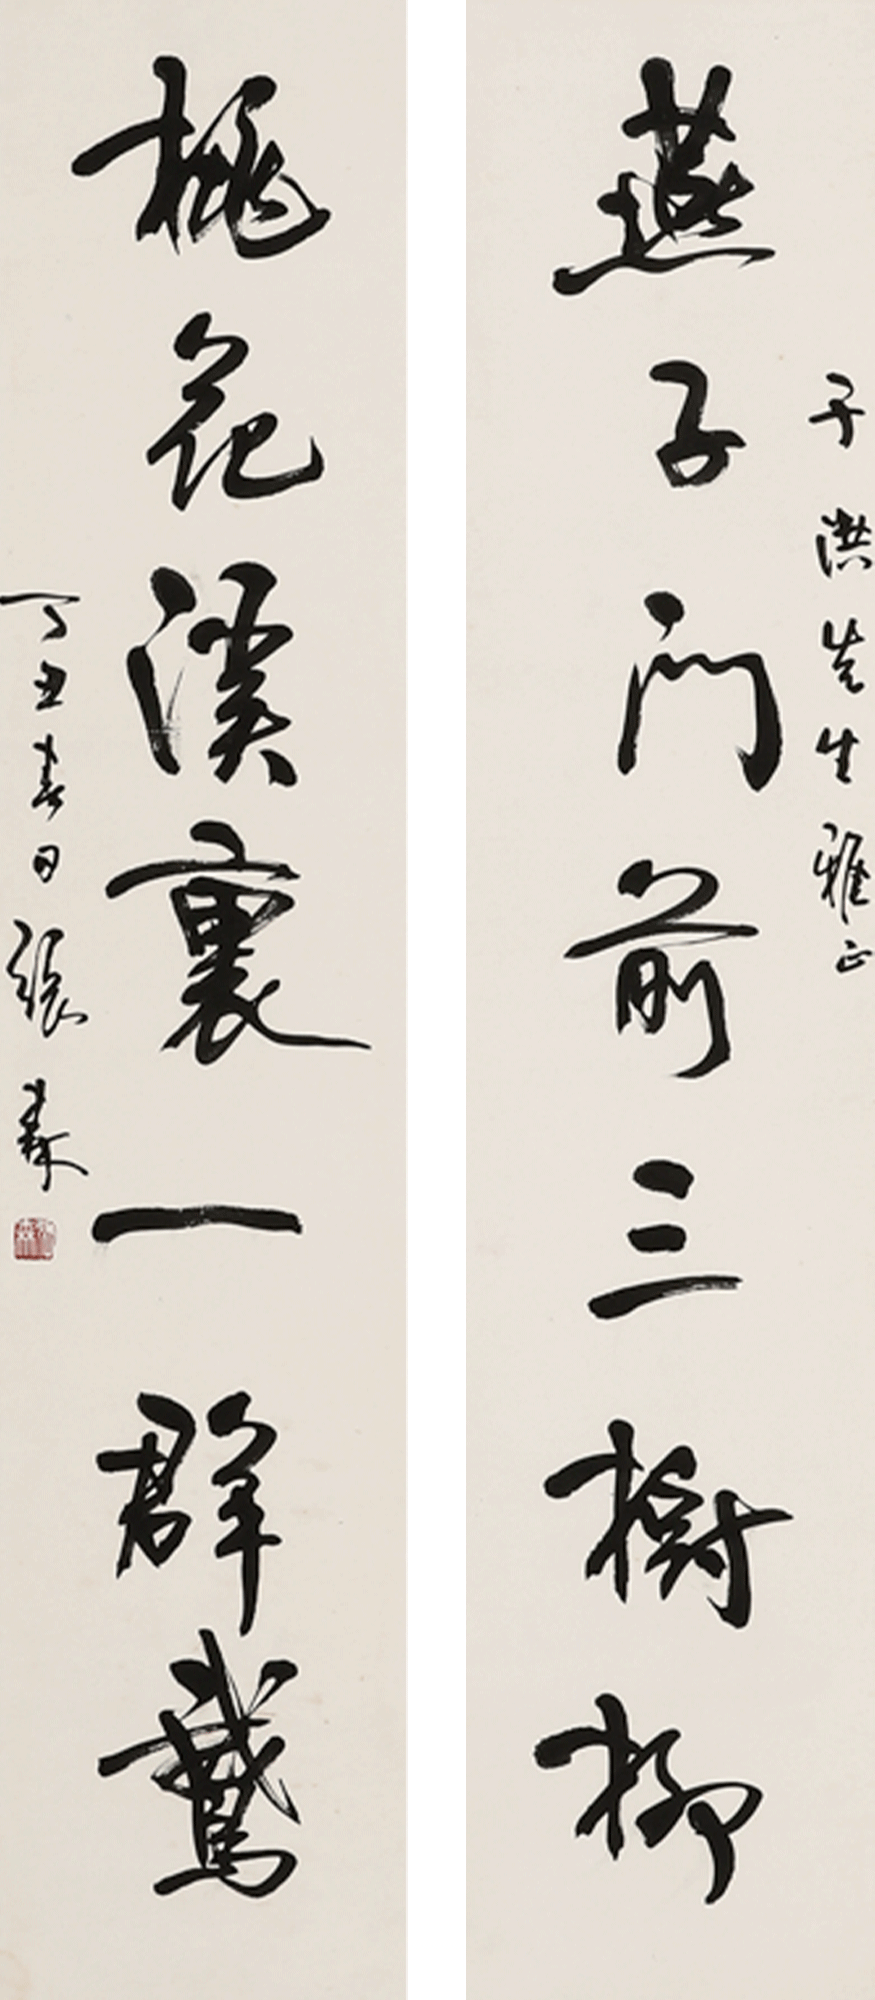 燕子門前三樹柳
子洪先生雅正
桃花溪裏一群鵞
丁丑春日張森